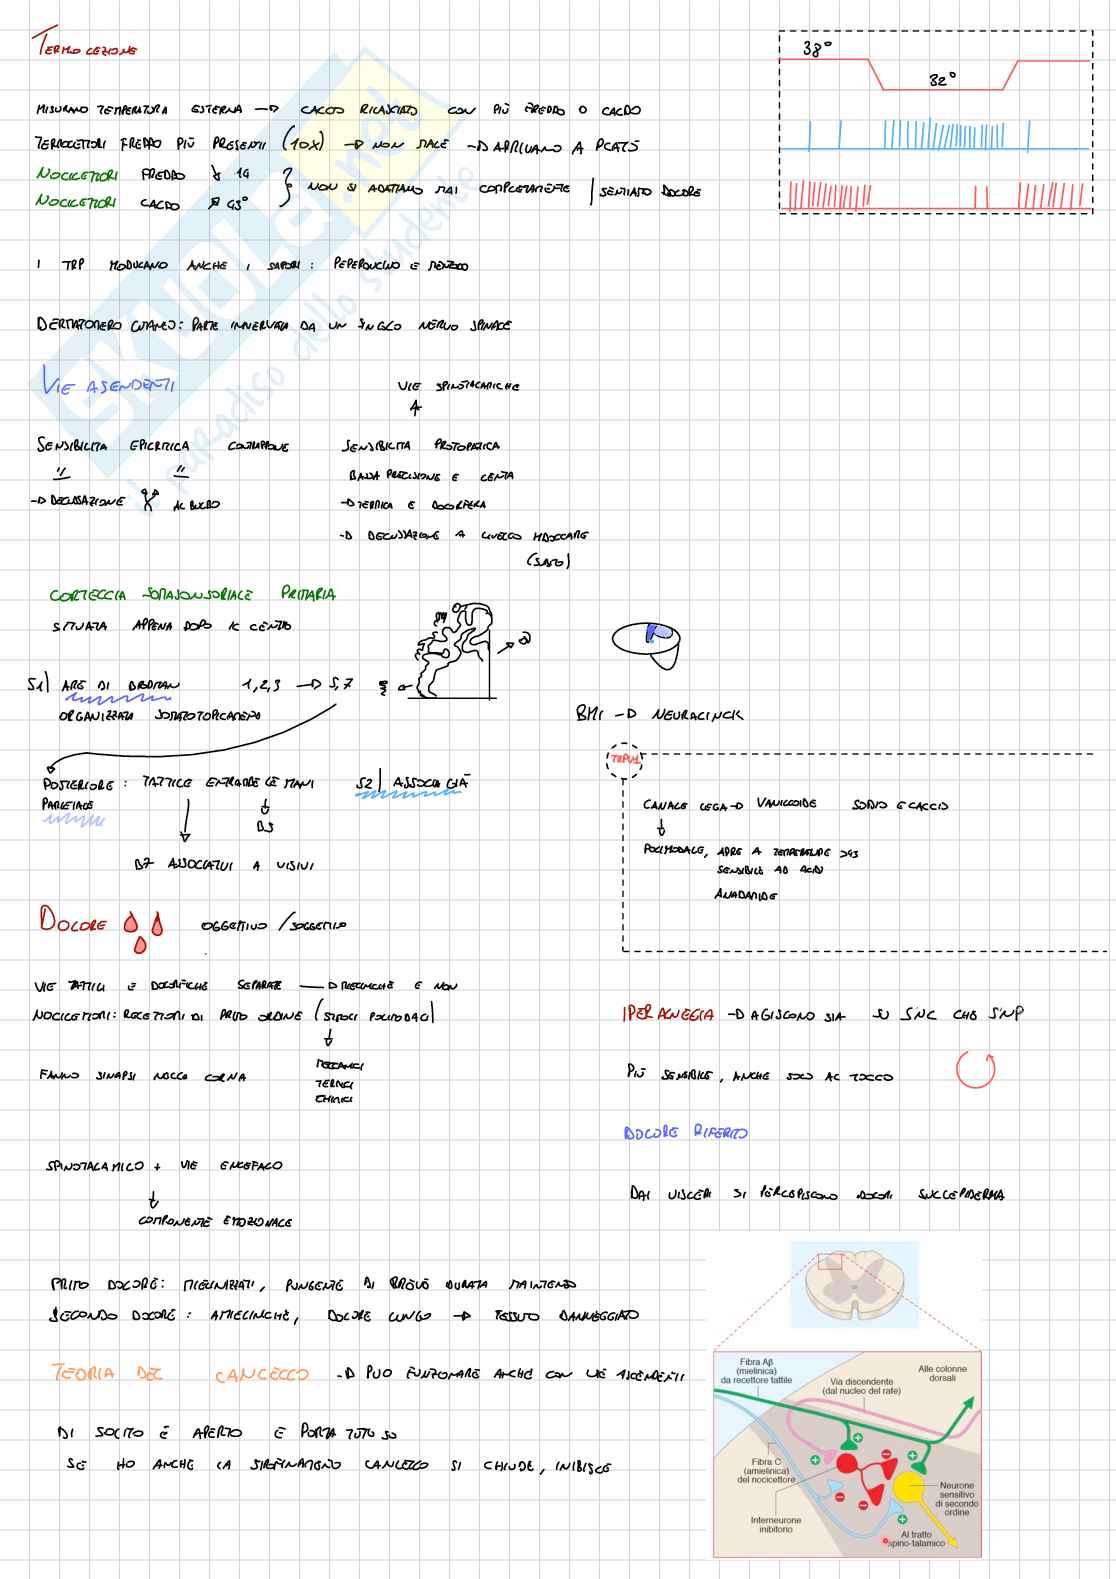 TERMOCEZIONE
38°
32°
MISURANO TEMPERATURA ESTERNA → CALCIO RILASCIATO CON PIÙ FREDDO O CALDO
TERMOCETTORI FREDDO PIÙ PRESENTI (10X) → NON MALE → ARRIVANO A
NOCICETTORI FREDDO ↘ 14
NOCICETTORI CALDO ↗ 45°
} NON SI ADATTANO MAI COMPLETAMENTE | SENTIATO DOLORE
I TRP MODULANO ANCHE I SAPORI: PEPERONCINO E MENTOLO
DERMATOMERO CUTANEO: PARTE INNERVATA DA UN SINGLO NERVO SPINALE
VIE ASENDENTI
VIE SPINOTALAMICHE
SENSIBILITA EPICRITICA CONTRAPPONE
SENSIBILITA PROTOPATICA
BASSA PRECISIONE E LENTA
→ DECUSSAZIONE AL BULBO
→ TERMICA E DOLORIFERA
→ DECUSSAZIONE A LIVELLO MIDOLLARE
(SUBITO)
CORTECCIA SOMASONSORIALE PRIMARIA
SITUATA APPENA DOPO IL CENTRO
S1) ARE DI BRODMAN 1,2,3 → 5,7
ORGANIZZATA SOMATOTOPICAMENTE
BMI → NEURALINCK
POSTERIORE: TATTILE ENTRAMBE LE MANI
PARIETALE
S2) ASSOCIA GIÀ
B5
B7 ASSOCIATIVI A VISIVI
TRPV1
CANALE LEGA → VANILLOIDE SODIO E CALCIO
POLIMODALE, APRE A TEMPERATURE >43
SENSIBILE AD ACIDI
ANADAMIDE
DOLORE OGGETTIVO / SOGGETTIVO
VIE TATTILI E DOLORIFICHE SEPARATE → MIELINICHE E NON
NOCICETTORI: RECETTORI DI PRIMO ORDINE (SINGOLI POLIMODALI)
MECCANICI
TERMICI
CHIMICI
FANNO SINAPSI NELLE CORNA
IPERALNEGIA → AGISCONO SIA SU SNC CHE SNP
PIÙ SENSIBILE, ANCHE SOLO AL TOCCO
DOLORE RIFERITO
DAI VISCERI SI PERCEPISCONO DOLORI SULL'EPIDERMA
SPINOTALAMICO + VIE ENCEFALO
COMPONENTE EMOZIONALE
PRIMO DOLORE: MIELINIZZATI, PUNGENTE DI BREVE DURATA
SECONDO DOLORE: AMIELINICHE, DOLORE LUNGO → TESSUTO DANNEGGIATO
TEORIA DEL CANCELLO → PUO FUNZIONARE ANCHE CON VIE ASCENDENTI
DI SOLITO È APERTO E PORTA TUTTO SU
SE HO ANCHE LA SFREGAMENTO CANCELLO SI CHIUDE, INIBISCE
Fibra Aβ
(mielinica)
da recettore tattile
Via discendente
(dal nucleo del rafe)
Alle colonne
dorsali
Fibra C
(amielinica)
del nocicettore
Interneurone
inibitorio
Neurone
sensitivo
di secondo
ordine
Al tratto
spino-talamico
SKUOLA.net
il paradiso dello studente